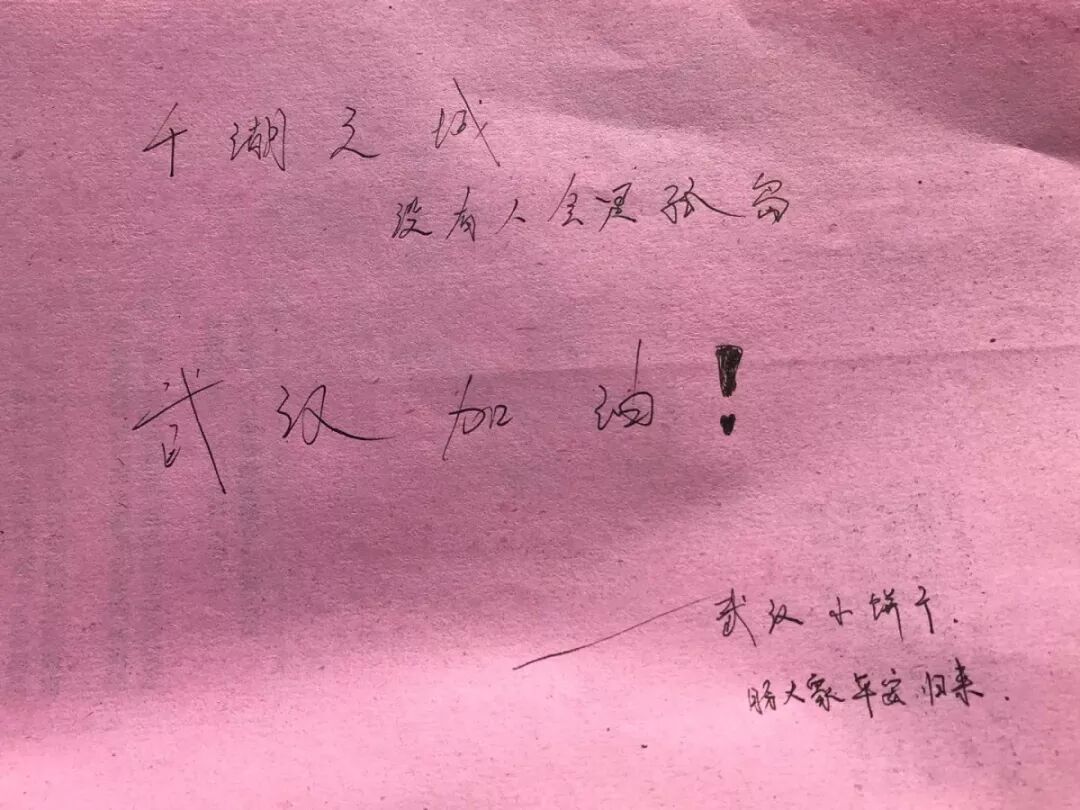 千湖之城
没有人会是孤岛
武汉加油!
——武汉小饼干.
盼大家平安归来.